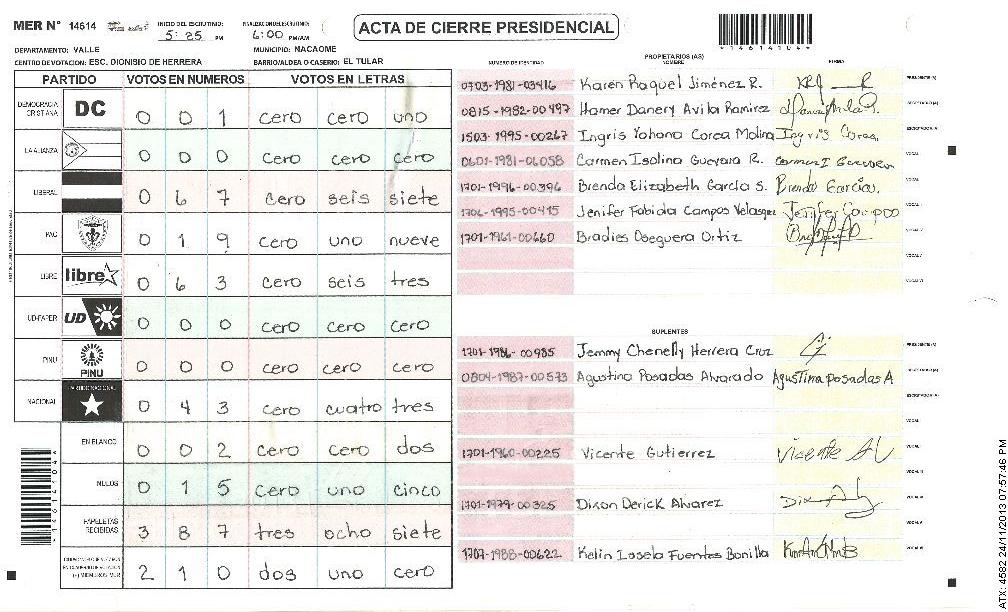 MER N° 14614
INICIO DEL ESCRUTINIO: 5:25 PM
FINALIZACION DEL ESCRUTINIO: 6:00 PM/AM
ACTA DE CIERRE PRESIDENCIAL
*1461410*
DEPARTAMENTO: VALLE
MUNICIPIO: NACAOME
CENTRO DE VOTACION: ESC. DIONISIO DE HERRERA
BARRIO/ALDEA O CASERIO: EL TULAR
PARTIDO VOTOS EN NUMEROS VOTOS EN LETRAS
DEMOCRACIA CRISTIANA DC 0 0 1 cero cero uno
LA ALIANZA 0 0 0 cero cero cero
LIBERAL 0 6 7 cero seis siete
PAC 0 1 9 cero uno nueve
LIBRE libre 0 6 3 cero seis tres
UD-FAPER UD 0 0 0 cero cero cero
PINU PINU 0 0 0 cero cero cero
NACIONAL PARTIDO NACIONAL 0 4 3 cero cuatro tres
EN BLANCO 0 0 2 cero cero dos
NULOS 0 1 5 cero uno cinco
PAPELETAS RECIBIDAS 3 8 7 tres ocho siete
(+) MIEMBROS MER 2 1 0 dos uno cero
PROPIETARIOS (AS)
NUMERO DE IDENTIDAD NOMBRE FIRMA
0703-1981-03416 Karen Raquel Jiménez R. PRESIDENTE (A)
0815-1982-00497 Hamer Danery Avila Ramirez SECRETARIO (A)
1503-1995-00267 Ingris Yohana Corea Molina Ingris Corea. ESCRUTADOR (A)
0601-1981-06058 Carmen Isolina Guevara R. Carmen I Guevara VOCAL I
1701-1996-00396 Brenda Elizabeth García S. Brenda García.
1706-1995-00415 Jenifer Fabiola Campos Velasquez Jenifer Campos
1701-1961-00660 Bradies Oseguera Ortiz
SUPLENTES
1701-1986-00985 Jemmy Chenelly Herrera Cruz PRESIDENTE (A)
0804-1987-00573 Agustina Posadas Alvarado Agustina posadas A SECRETARIO (A)
ESCRUTADOR (A)
1701-1960-00225 Vicente Gutierrez Vicente
1701-1979-00325 Dixon Derick Alvarez
1707-1988-00622 Kelin Issela Fuentes Bonilla
ATX: 4582 24/11/2013 07:57:46 PM